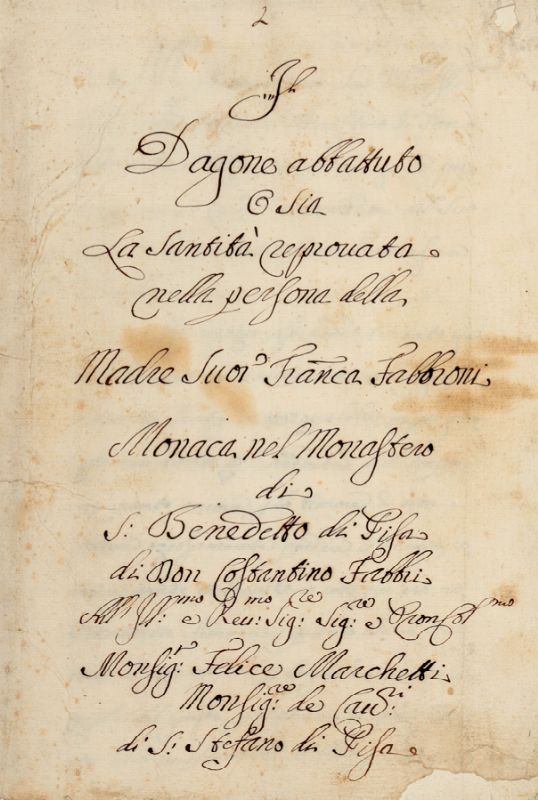 2
Il
Dagone abbattuto
O sia
La Santità reprovata
nella persona della
Madre Suor Fran̄ca Fabbroni
Monaca nel Monastero
di
S: Benedetto di Pisa
di Don Costantino Fabbri
All' Ill:mo e Reu:mo Sig:re Sig:re e Pron Col:mo
Monsig:r Felice Marchetti
Monsig:re de Cau:ri
di S: Stefano di Pisa